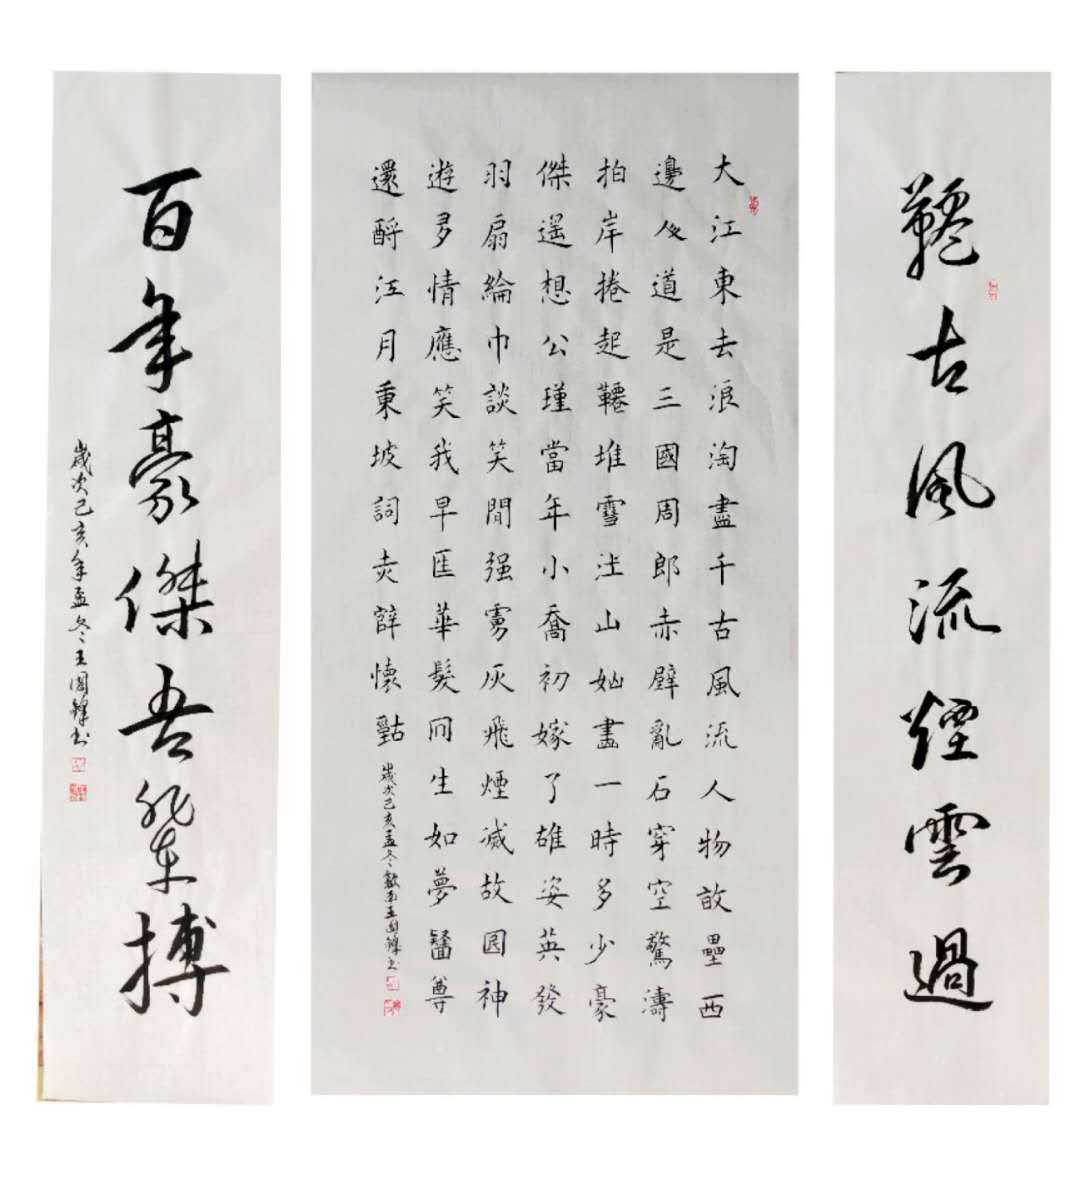 韆古風流煙雲過
大江東去浪淘盡千古風流人物故壘西
邊人道是三國周郎赤壁亂石穿空驚濤
拍岸捲起韆堆雪江山如畫一時多少豪
傑遥想公瑾當年小喬初嫁了雄姿英發
羽扇綸巾談笑間强虜灰飛煙滅故國神
遊多情應笑我早華髮生如夢尊
還酹江月東坡詞赤壁懷
歲次己亥孟冬歙南王國鋒书
百年豪傑吾輩搏
歲次己亥年孟冬王國鋒书